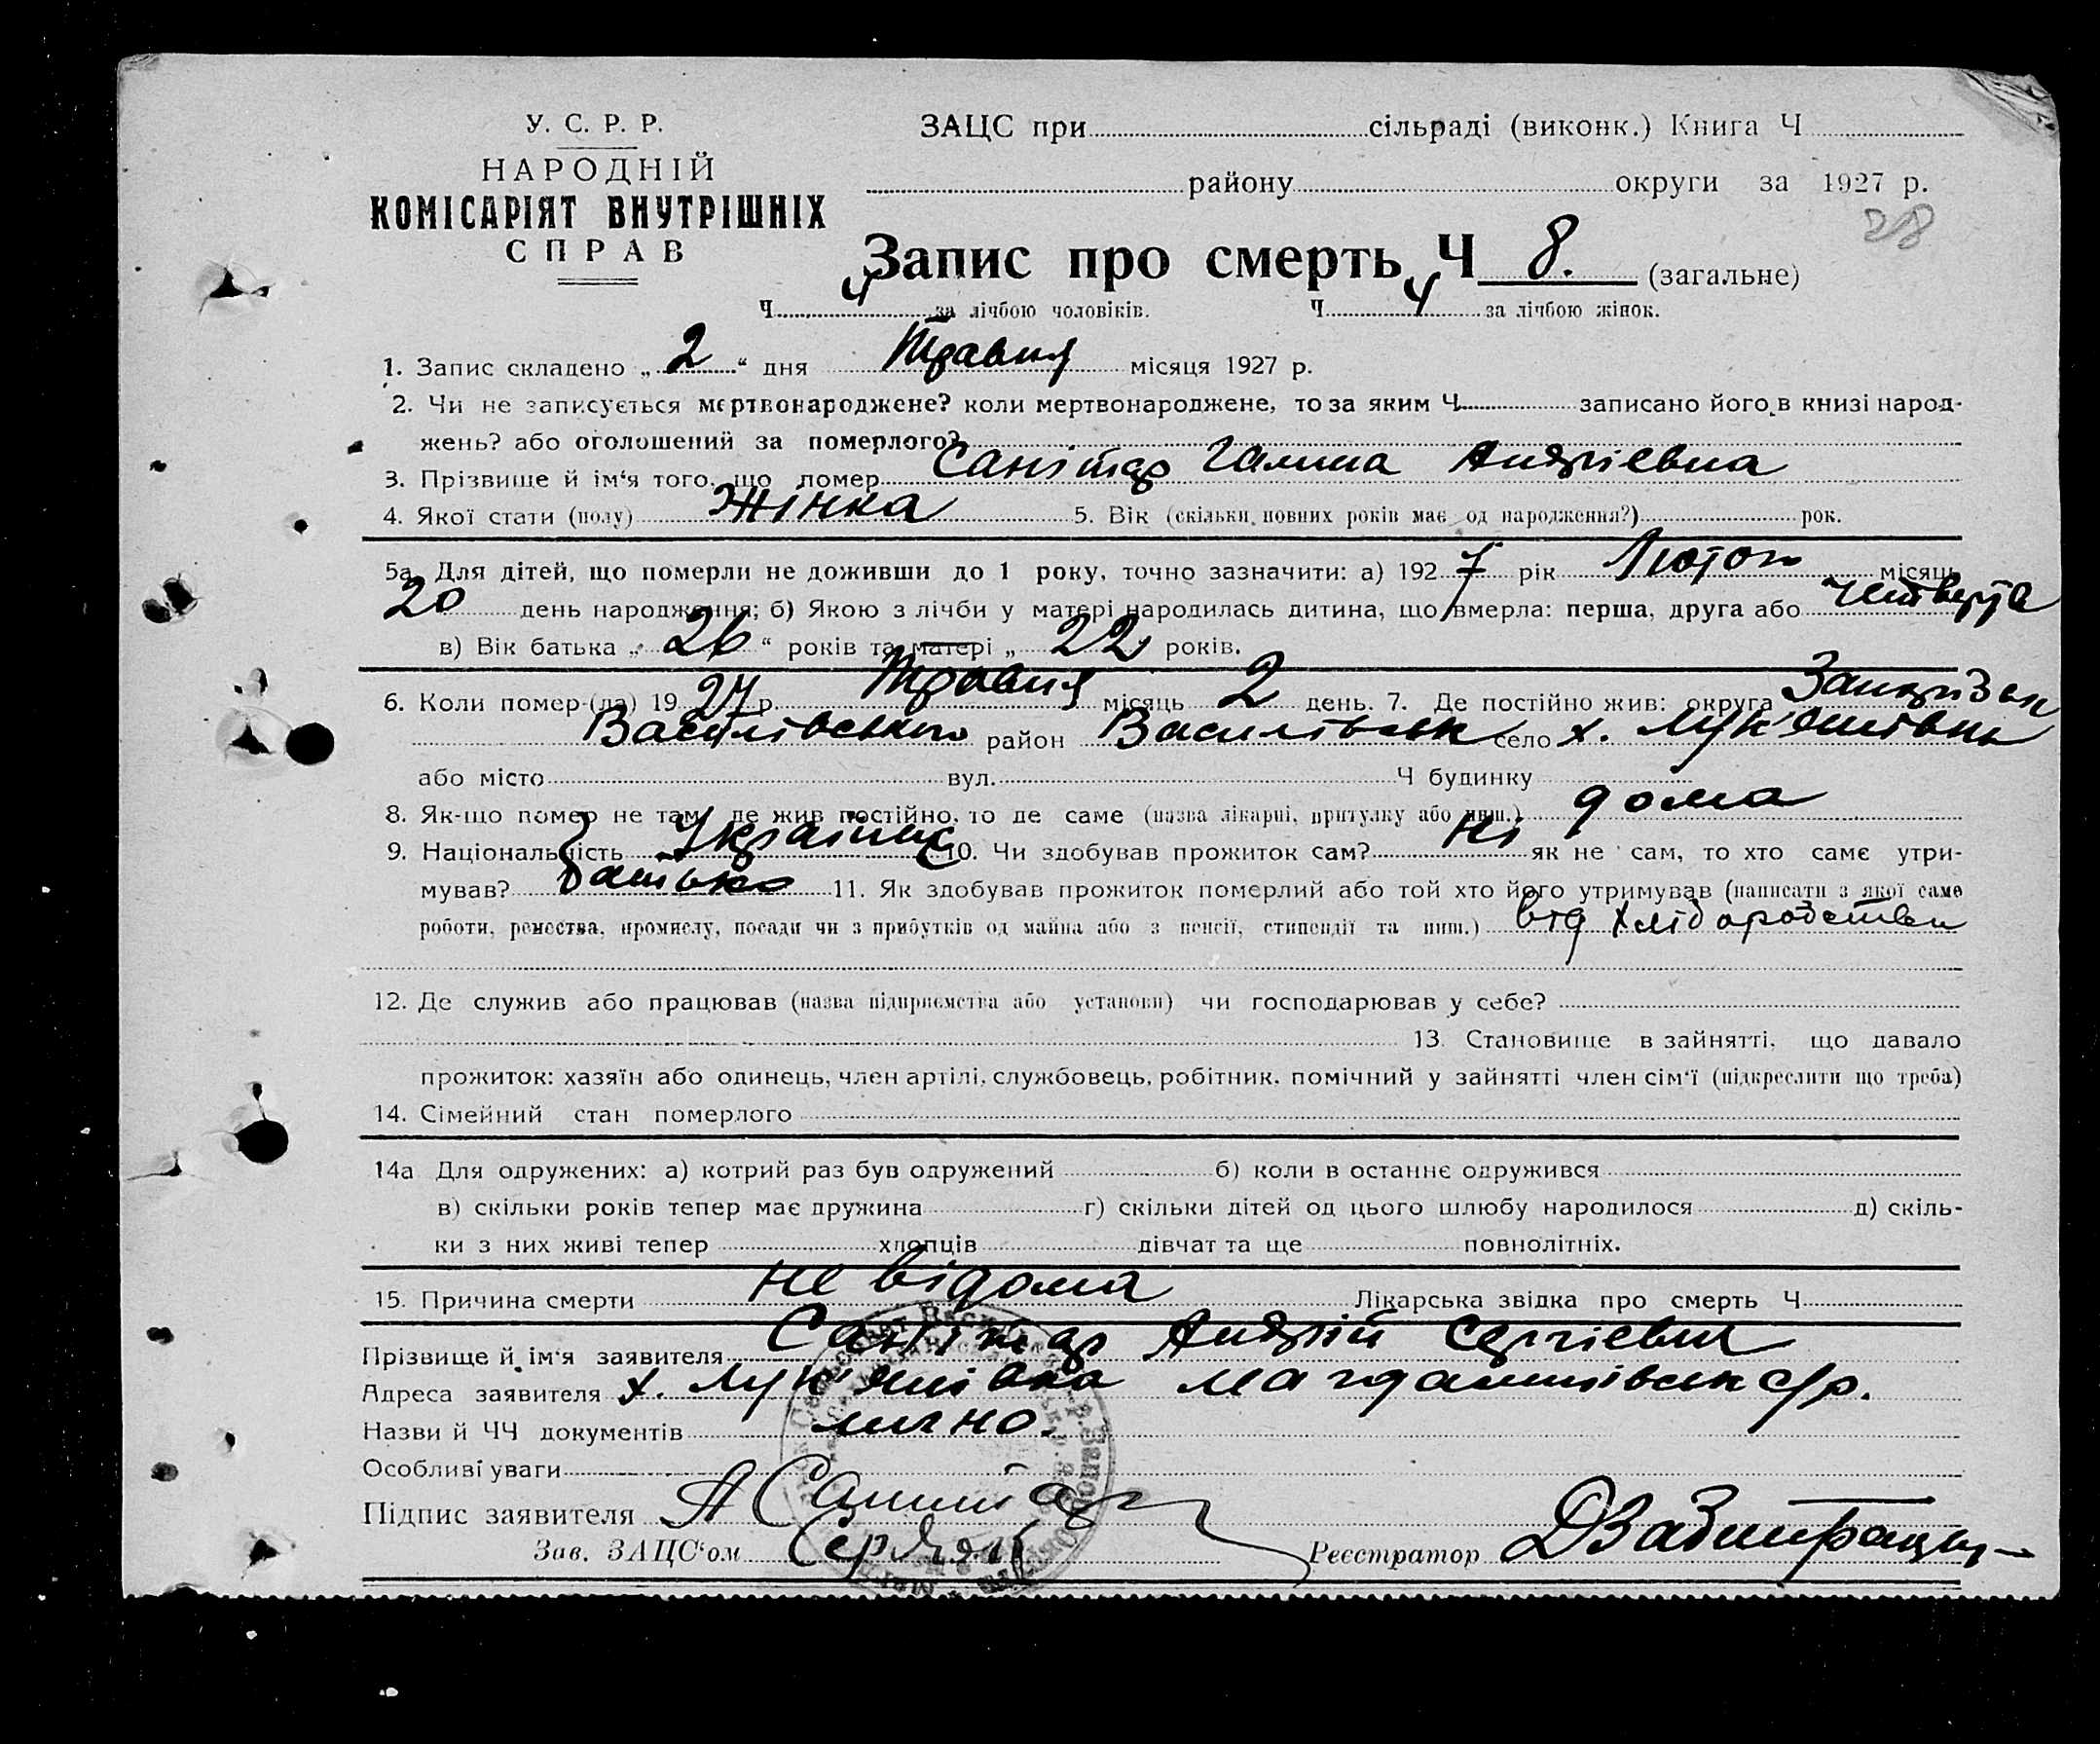 У. С. Р. Р.
НАРОДНІЙ
КОМІСАРІЯТ ВНУТРІШНІХ
СПРАВ
ЗАЦС при сільраді (виконк.) Книга Ч
району округи за 1927 р.
28
Запис про смерть Ч 8. (загальне)
Ч 4 за лічбою чоловіків. Ч 4 за лічбою жінок.
1. Запис складено „ 2 “ дня Травня місяця 1927 р.
2. Чи не записується мертвонароджене? коли мертвонароджене, то за яким Ч записано його в книзі народ-
жень? або оголошений за померлого?
3. Прізвище й ім‘я того, що помер Санітар Галина Андріевна
4. Якої стати (полу) Жінка 5. Вік (скільки повних років має од народження?) рок.
5а Для дітей, що померли не доживши до 1 року, точно зазначити: а) 192 7 рік Лютого місяць
20 день народження; б) Якою з лічби у матері народилась дитина, що вмерла: перша, друга або четверта
в) Вік батька „ 26 “ років та матері „ 22 років.
6. Коли помер-(ла) 19 27 р. Травня місяць 2 день. 7. Де постійно жив: округа Запорізьк
Василівського район Василівськ село х. Лук'янівка
або місто вул. Ч будинку
8. Як-що помер не там, де жив постійно, то де саме (назва лікарні, притулку або инш.) дома
9. Національність Украінц 10. Чи здобував прожиток сам? Ні як не сам, то хто саме утри-
мував? батько 11. Як здобував прожиток померлий або той хто його утримував (написати з якої саме
роботи, ремества, промислу, посади чи з прибутків од майна або з пенсії, стипендії та инш.) від хліборобства
12. Де служив або працював (назва підприємства або установи) чи господарював у себе?
13. Становище в зайнятті, що давало
прожиток: хазяїн або одинець, член артілі, службовець, робітник, помічний у зайнятті член сім‘ї (підкреслити що треба)
14. Сімейний стан померлого
14а Для одружених: а) котрий раз був одружений б) коли в останнє одружився
в) скільки років тепер має дружина г) скільки дітей од цього шлюбу народилося д) скіль-
ки з них живі тепер хлопців дівчат та ще повнолітніх.
15. Причина смерти не відома Лікарська звідка про смерть Ч
Прізвище й ім‘я заявителя Санітар Андрій Сергіевич
Адреса заявителя х. Лук'янівка с/р.
Назви й ЧЧ документів лично.
Особливі уваги
Підпис заявителя А Санитар
Зав. ЗАЦС‘ом
Реєстратор